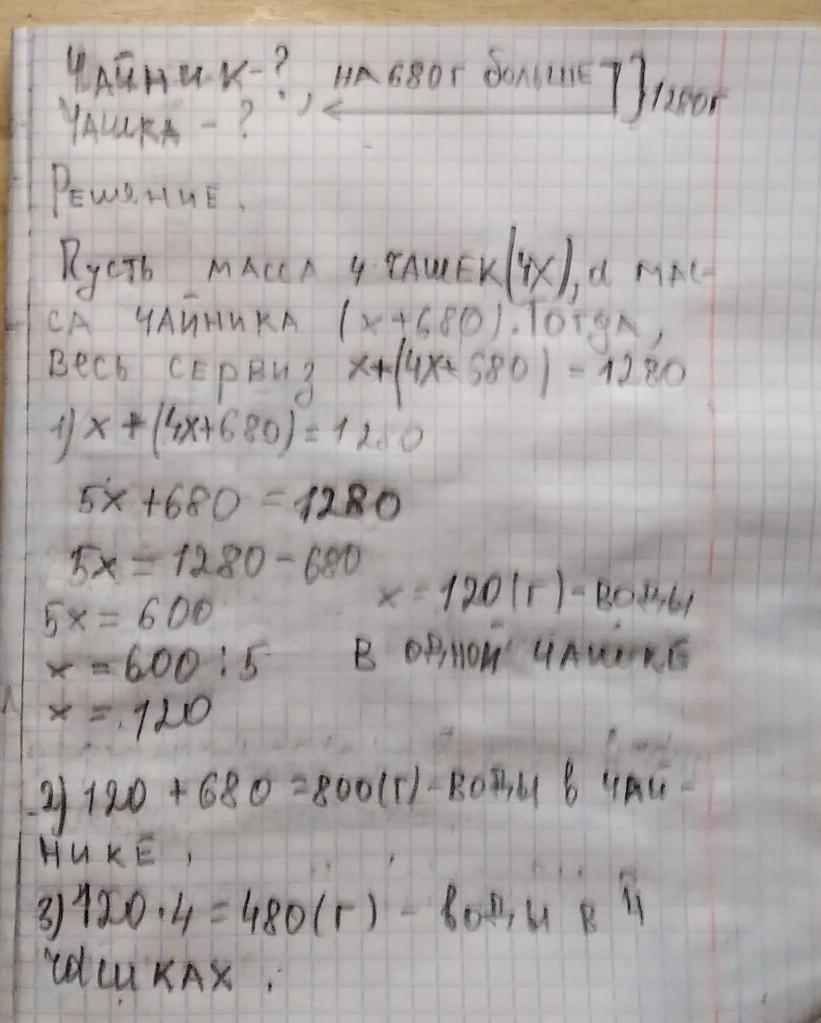 Чайник-?, на 680г больше ]} 1280г
Чашка - ?
Решение.
Пусть масса 4 чашек (4х), а мас-
са чайника (х+680). Тогда,
весь сервиз х+(4х+680) = 1280
1) х + (4х+680) = 1280
5х + 680 = 1280
5х = 1280 - 680
5х = 600
х = 600 : 5
х = 120
х = 120(г) - воды
в одной чашке
2) 120 + 680 = 800(г) - воды в чай-
нике.
3) 120 · 4 = 480(г) - воды в 4
чашках.